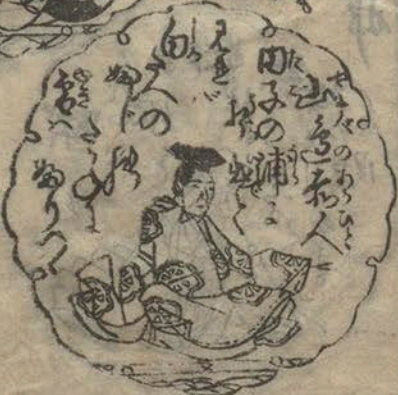 山邉赤人
田子の浦に
打出て
見れば
白たへの
ふじの
たかねに
雪はふりつゝ